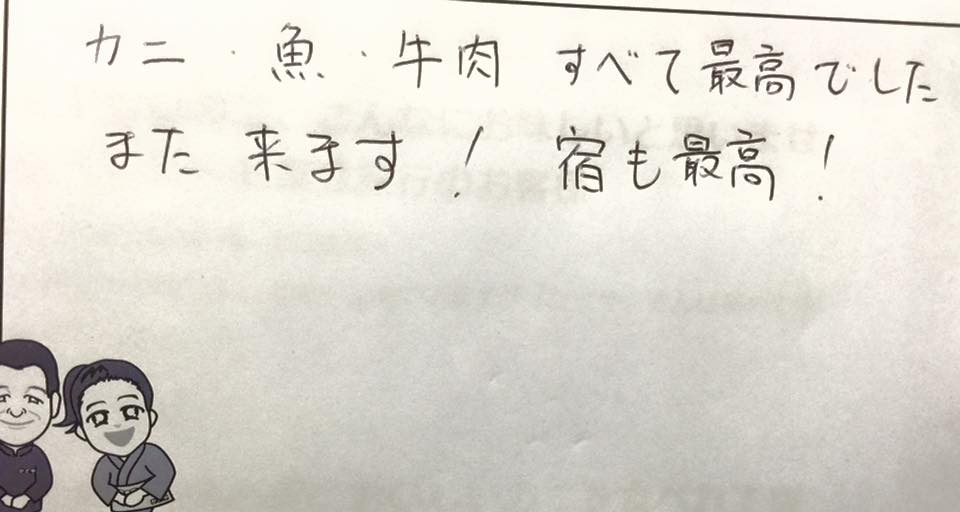 カニ・魚・牛肉 すべて最高でした
また 来ます! 宿も最高!